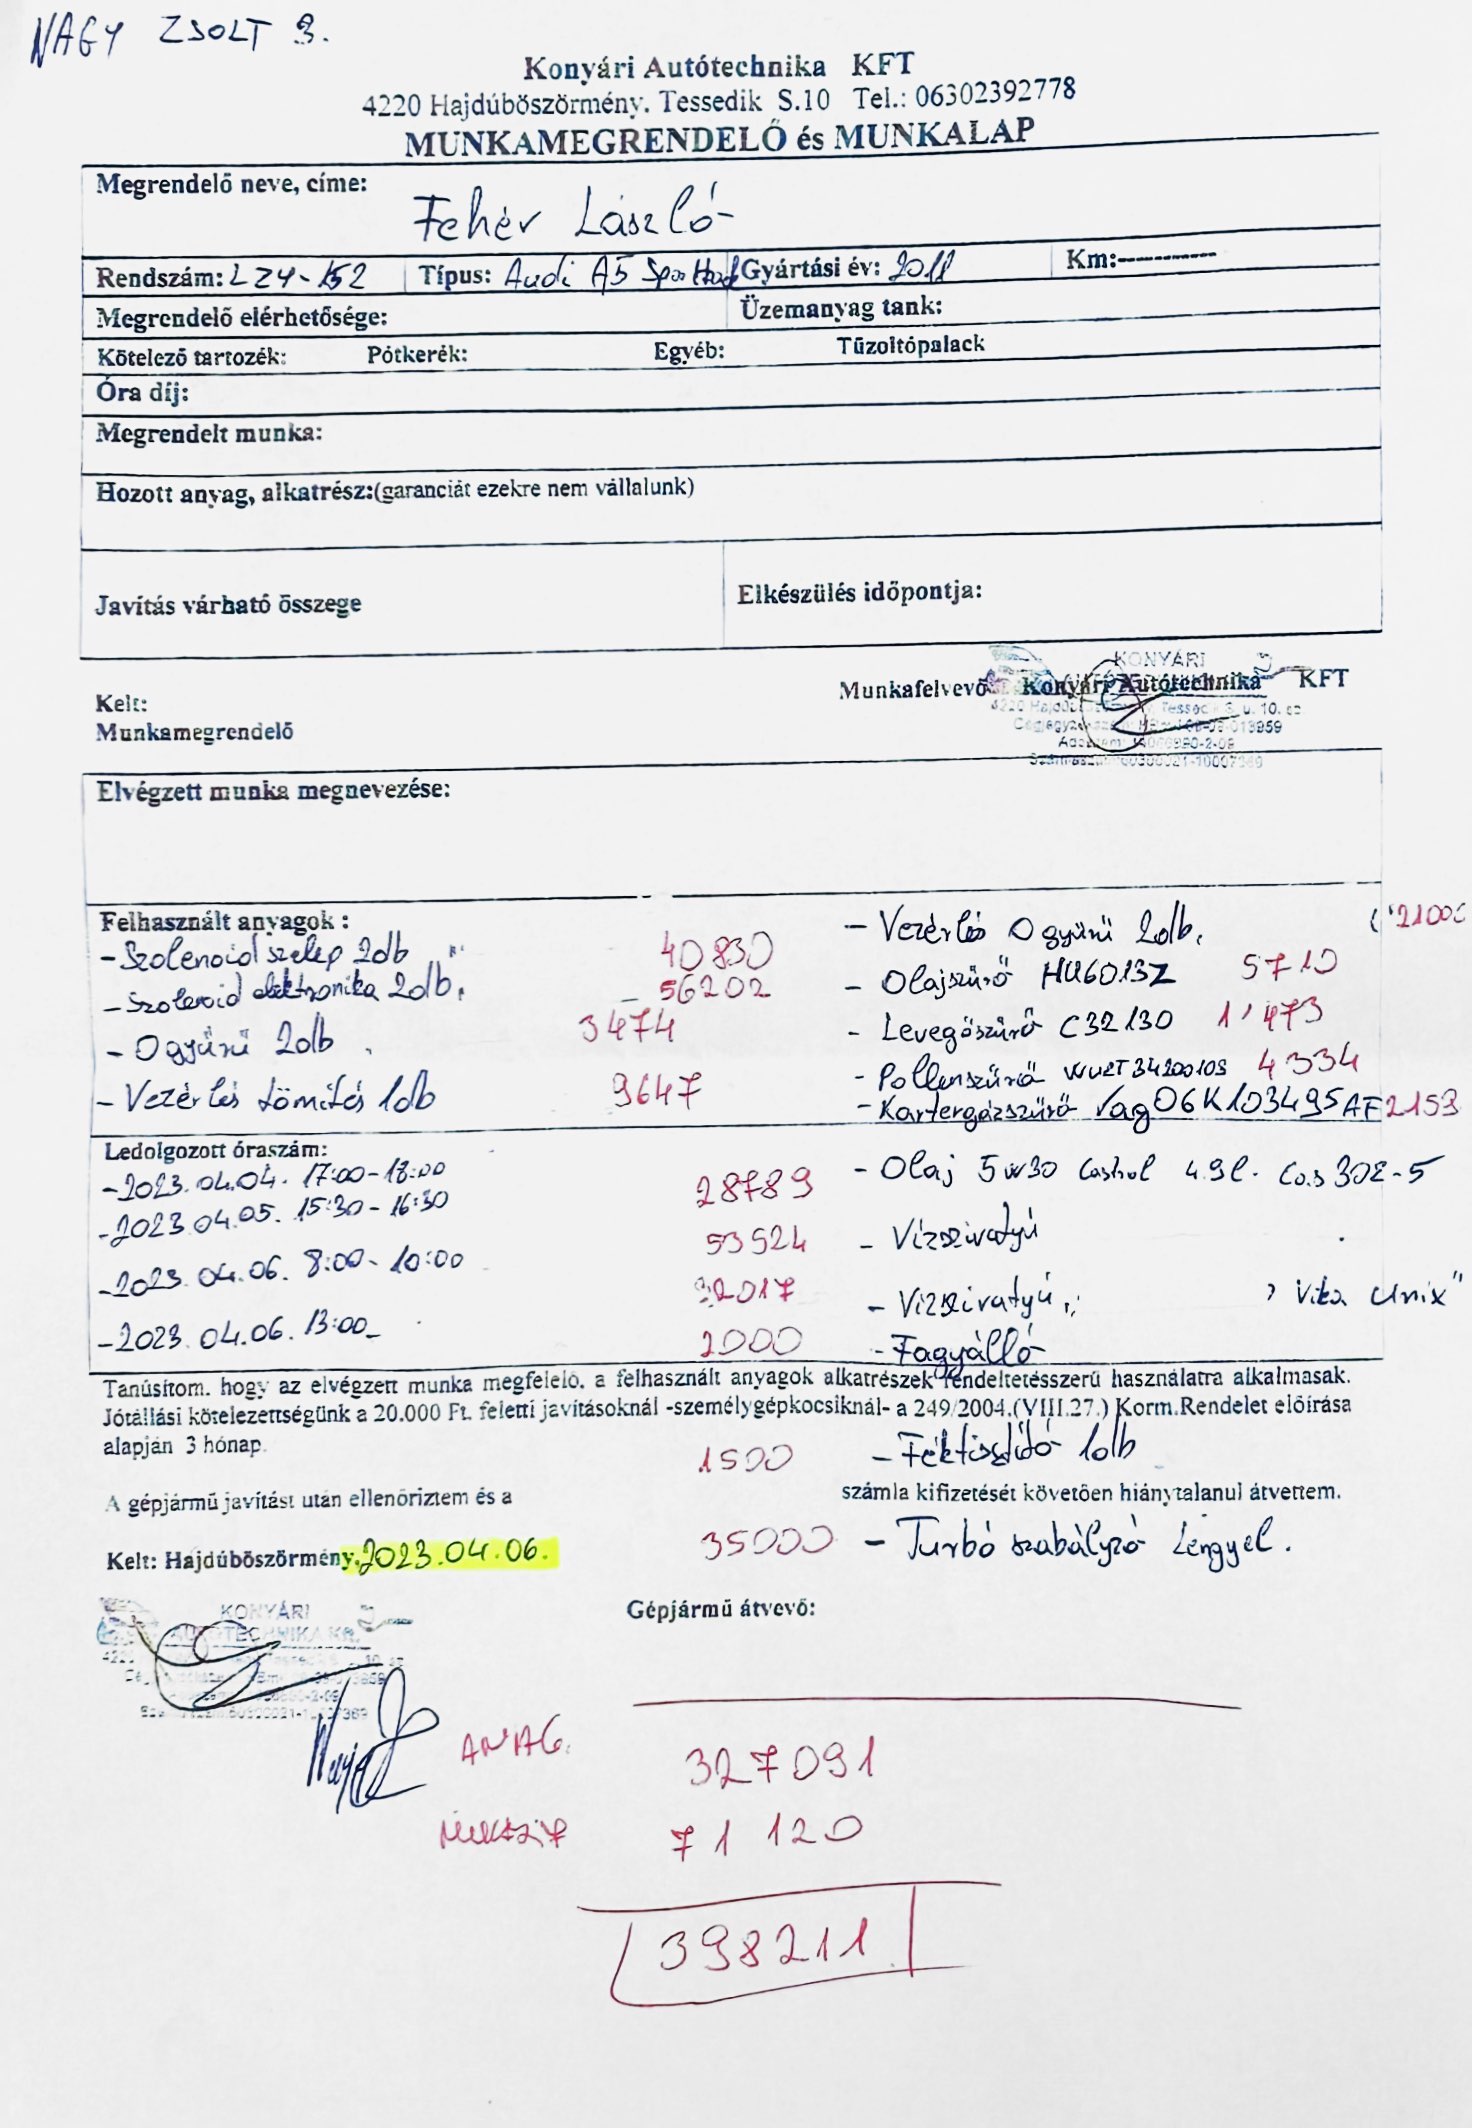 NAGY ZSOLT 3.
Konyári Autótechnika KFT
4220 Hajdúböszörmény. Tessedik S.10 Tel.: 06302392778
MUNKAMEGRENDELŐ és MUNKALAP
Megrendelő neve, címe:
Fehér László
Rendszám: LZY-152 Típus: Audi A5 Gyártási év: 2011 Km:-----------
Megrendelő elérhetősége: Üzemanyag tank:
Kötelező tartozék: Pótkerék: Egyéb: Tűzoltópalack
Óra díj:
Megrendelt munka:
Hozott anyag, alkatrész:(garanciát ezekre nem vállalunk)
Javítás várható összege Elkészülés időpontja:
Kelt: Munkafelvevő: Konyári Autótechnika KFT
Munkamegrendelő
KONYÁRI
Elvégzett munka megnevezése:
Felhasznált anyagok :
- Szolenoid szelep 2db 40830
- Szolenoid elektronika 2db. 56202
- O gyűrű 2db. 3474
- Vezérlés tömítés 1db 9647
- Vezérlés O gyűrű 2db.
- Olajszűrő HU6013Z 5710
- Levegőszűrő C32130 11473
- Pollenszűrő 4334
- Kartergázszűrő Vag 06K103495AF 2153
Ledolgozott óraszám:
-2023.04.04. 17:00-18:00
-2023.04.05. 15:30-16:30
-2023.04.06. 8:00-10:00
-2023.04.06. 13:00-
28789 - Olaj 5w30 Castrol 4.9l.
53524 - Vízszivattyú
32017 - Vízszivattyú
2000 - Fagyálló
Tanúsítom. hogy az elvégzett munka megfelelő. a felhasznált anyagok alkatrészek rendeltetésszerű használatra alkalmasak.
Jótállási kötelezettségünk a 20.000 Ft. feletti javításoknál -személygépkocsiknál- a 249/2004.(VIII.27.) Korm.Rendelet előírása
alapján 3 hónap.
1500 - Féktisztító 1db
A gépjármű javítást után ellenőriztem és a számla kifizetését követően hiánytalanul átvettem.
35000 - Turbó szabályzó Lengyel.
Kelt: Hajdúböszörmény. 2023.04.06.
Gépjármű átvevő:
KONYÁRI
ANYAG. 327091
71 120
398211